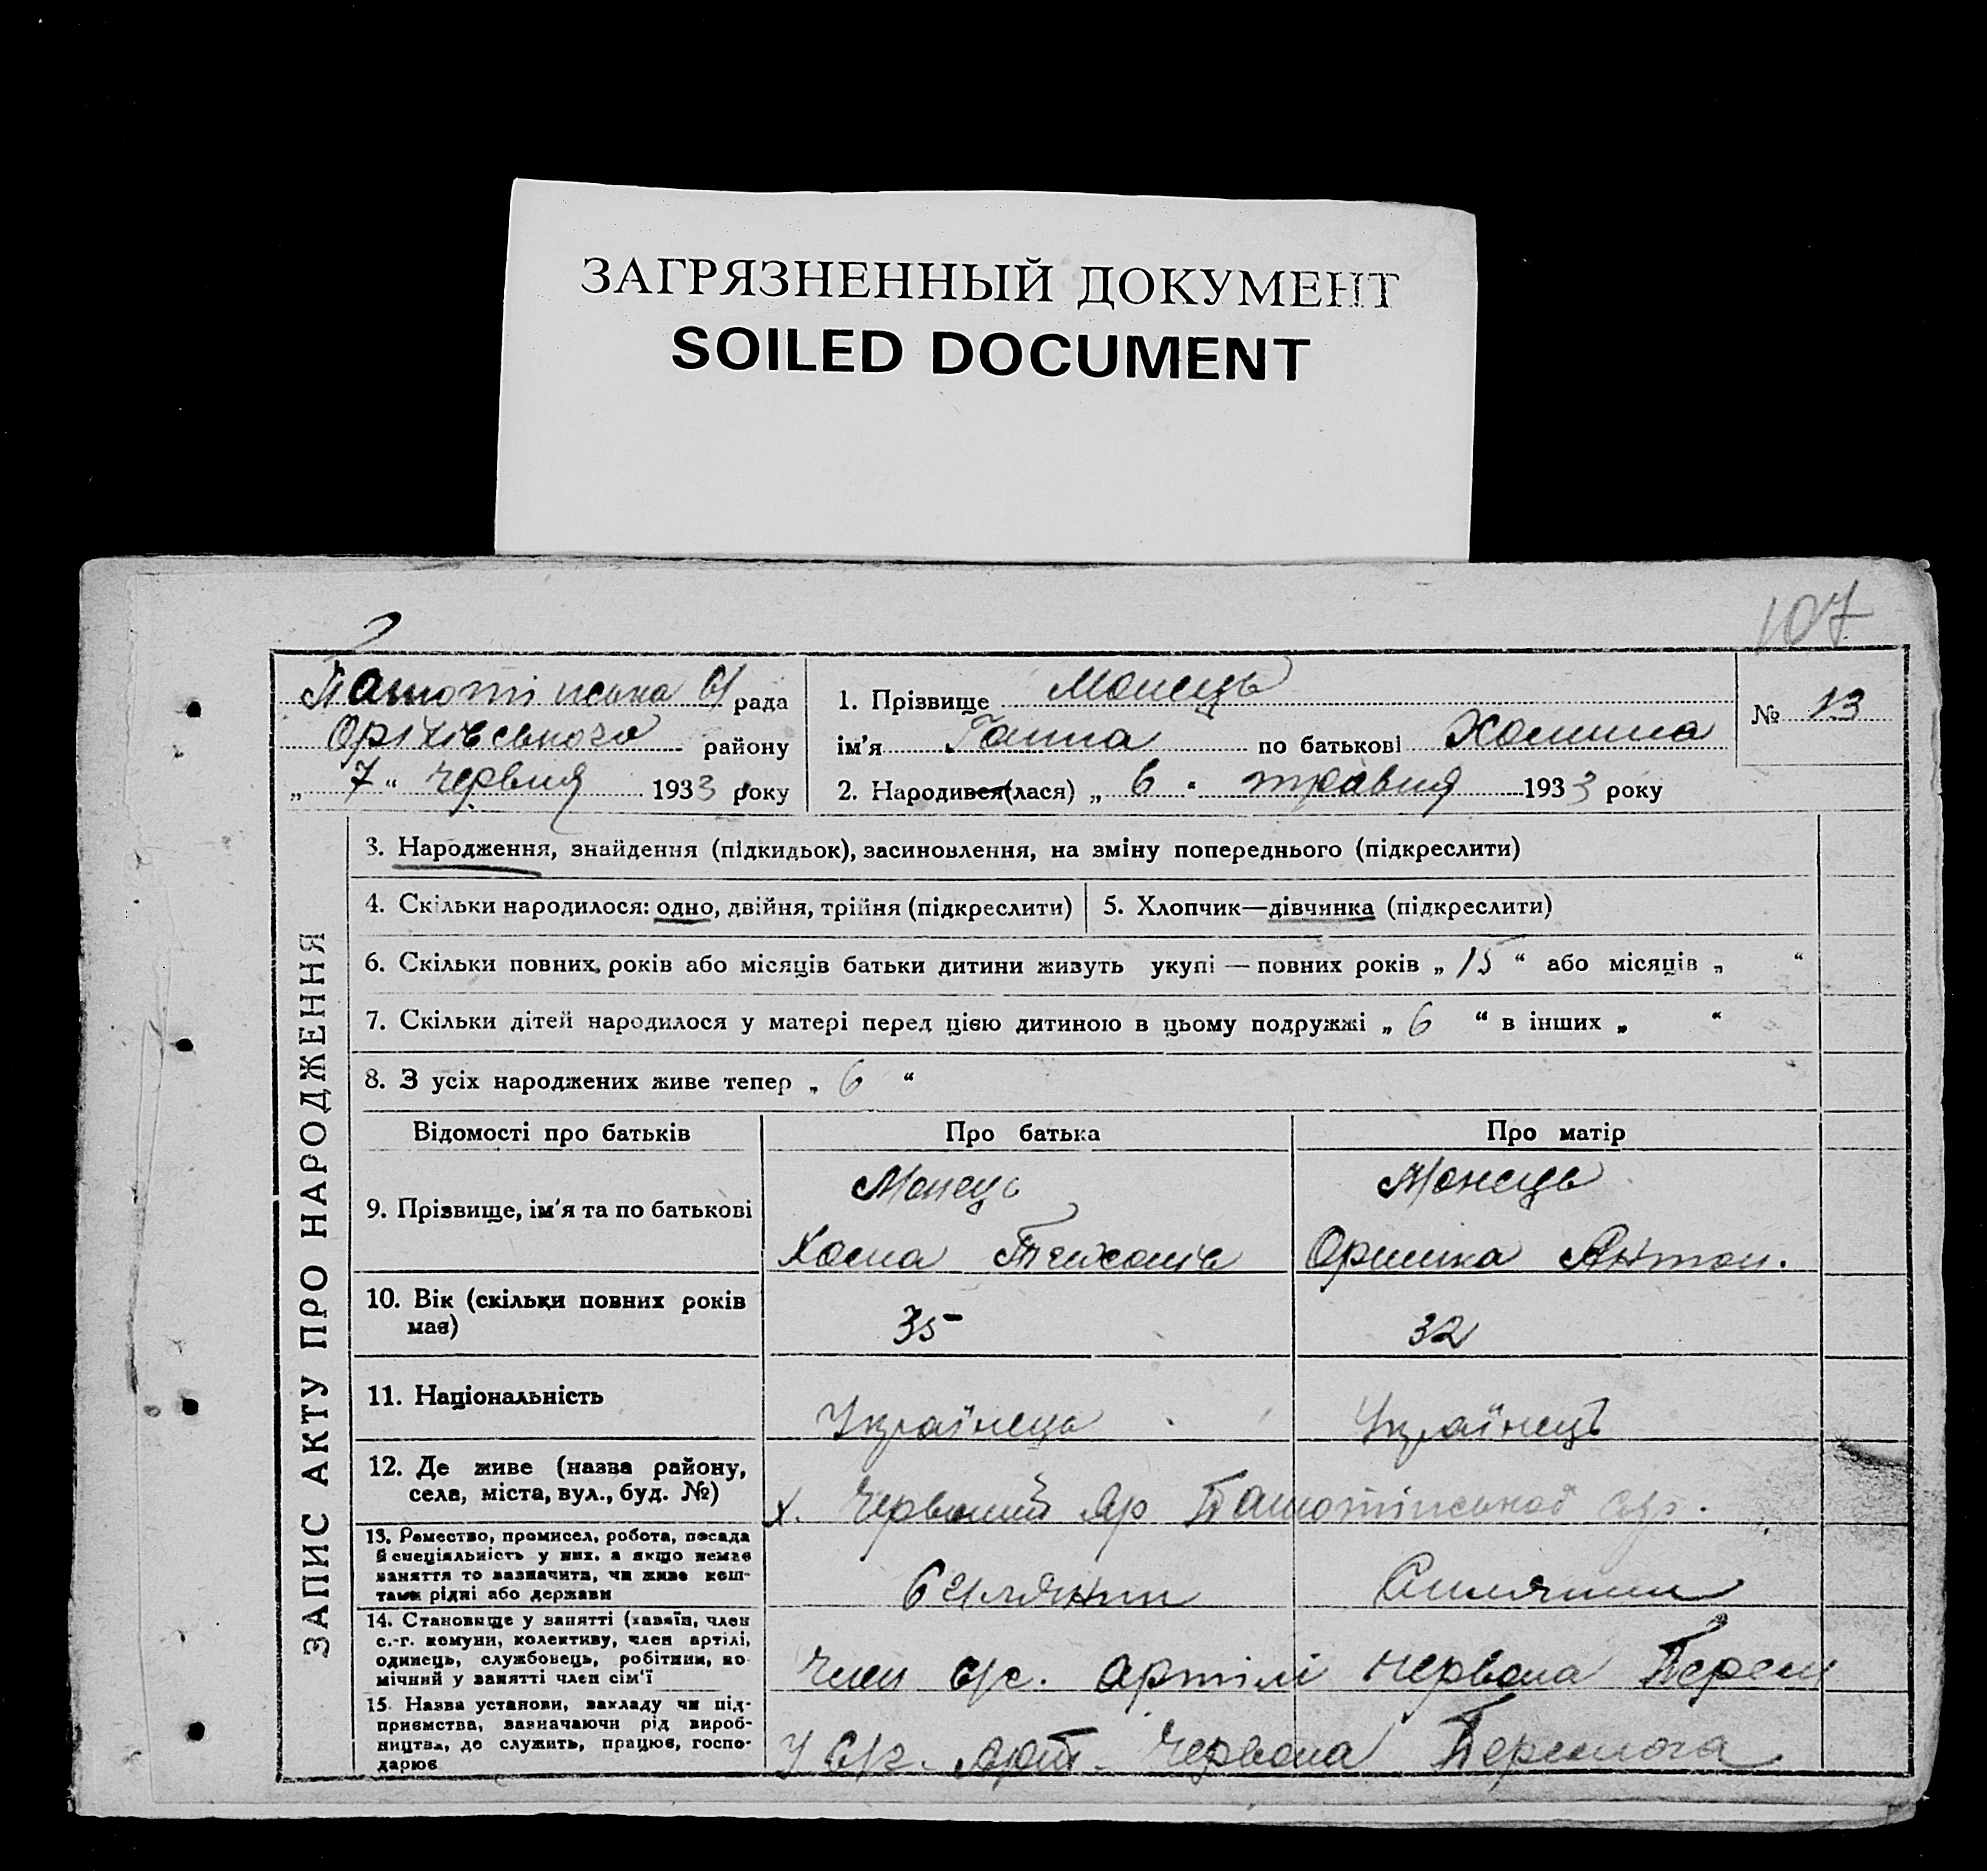 ЗАГРЯЗНЕННЫЙ ДОКУМЕНТ
SOILED DOCUMENT
107
ЗАПИС АКТУ ПРО НАРОДЖЕННЯ
рада
Оріхівського району
„ 7 “ червня 1933 року
1. Прізвище Монець
ім’я Ганна по батькові Хомина
№ 13
2. Народився(лася) „ 6 “ травня 1933 року
3. Народження, знайдення (підкидьок), засиновлення, на зміну попереднього (підкреслити)
4. Скільки народилося: одно, двійня, трійня (підкреслити)
5. Хлопчик—дівчинка (підкреслити)
6. Скільки повних, років або місяців батьки дитини живуть укупі — повних років „ 15 “ або місяців „ “
7. Скільки дітей народилося у матері перед цією дитиною в цьому подружжі „ 6 “ в інших „ “
8. З усіх народжених живе тепер „ 6 “
Відомості про батьків
Про батька
Про матір
9. Прізвище, ім’я та по батькові
Монець
Хома Тихонів
Монець
Оришка Антон.
10. Вік (скільки повних років
має)
35
32
11. Національність
Українець
Українець
12. Де живе (назва району,
села, міста, вул., буд. №)
х. Червоний Яр
13. Ремество, промисел, робота, посада
й спеціяльність у них, а якщо немає
заняття то вазначити, чи живе кош-
тами рідні або держави
14. Становище у занятті (хазяїн, член
с.-г. комуни, колективу, член артілі,
одинець, службовець, робітник, по-
мічний у занятті член сім’ї
член с/г. артілі Червона Перем
15. Назва установи, закладу чи під-
приємства, зазначаючи рід вироб-
ництва, де служить, працює, госпо-
дарює
У с/г. арт. Червона Перемога